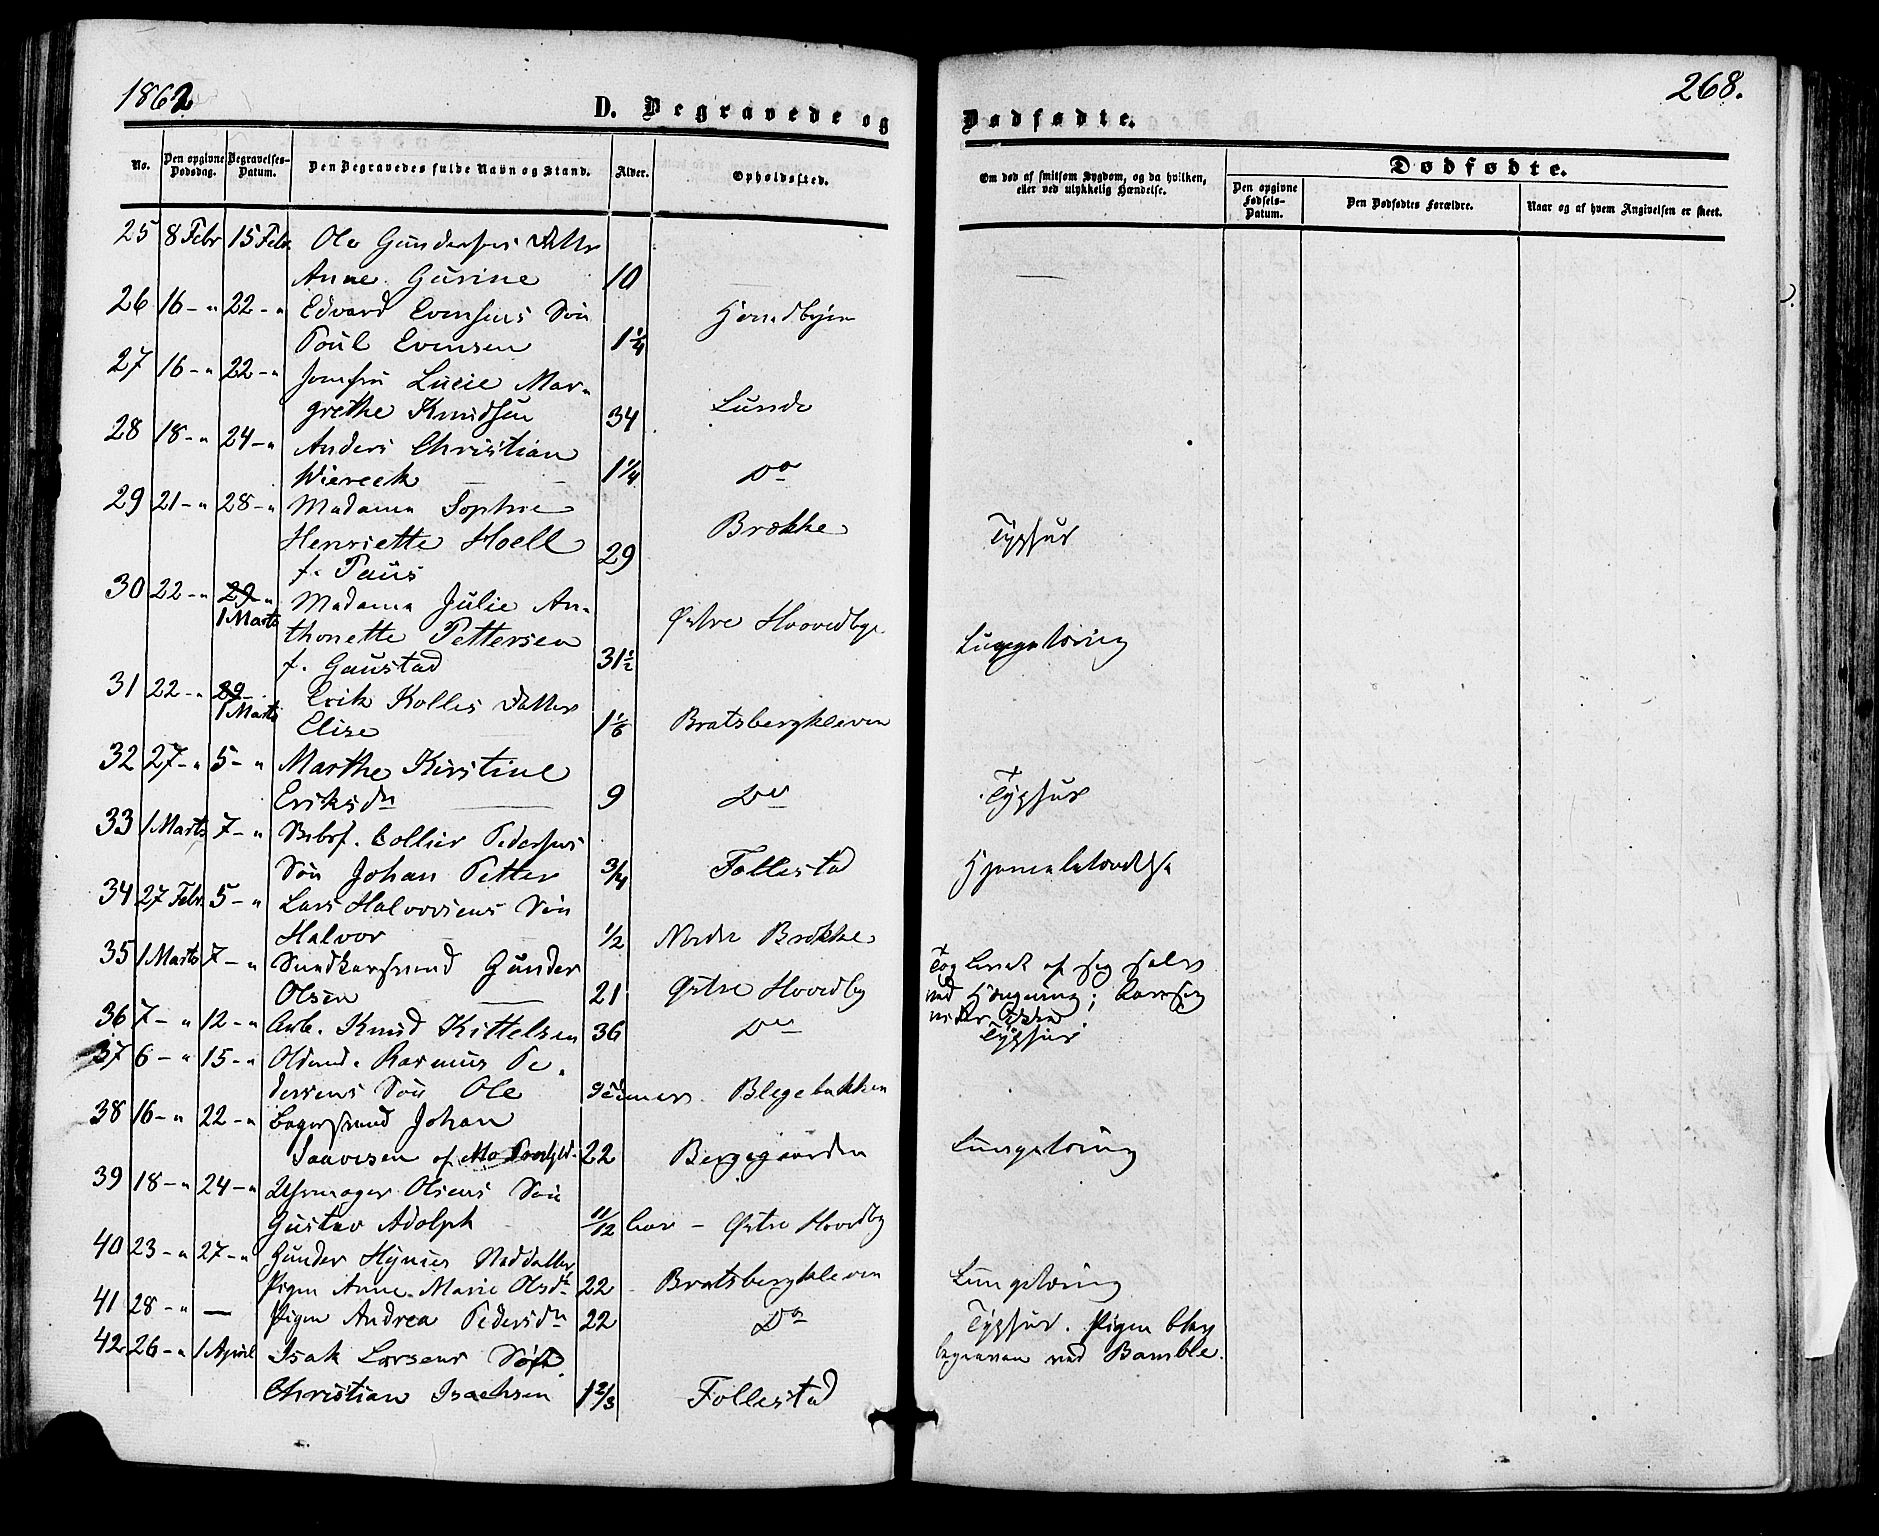 1862
268.
D. Begravede og Dødfødte.
No. Den opgivne Dødsdag. Begravelses-Datum. Den Begravedes fulde Navn og Stand. Alder. Opholdssted. Om død af smitsom Sygdom, og da hvilken, eller ved ulykkelig Hændelse. Dødfødte.
Den opgivne Fødsels-Datum. Den Dødfødtes Forældre. Naar og af hvem Angivelsen er skeet.
25 8 Febr 15 Febr Ole Gundersens Datter
Anne Gurine 10
26 16 - " 22 - " Edvard Evensens Søn
Poul Evensen 1 1/4
27 16 - " 22 - " Jomfru Lucie Mar-
grethe Knudsen 34 Lunde
28 18 - " 24 - " Anders Christian
Wiereck 1 1/4 Do
29 21 - " 28 - " Madame Sophie
Henriette Hoell 29 Brække Typhus
f. Paus
30 22 - " 29 - " Madame Julie An-
1 Marts thonette Pettersen Østre Hovedbye Lungetæring
f. Gaustad 31 1/2
31 22 - " 29 - Erik Kolles Datter
1 Marts Elise 1 1/6 Bratsbergkleven
32 27 - " 5 - " Marthe Kirstine
Eriksdn 9 Do Typhus
33 1 Marts 7 - " Collier Pedersens
Søn Johan Petter 3/4 Follestad Hjernebetændelse
34 27 Febr 5 - " Lars Halvorsens Søn
Halvor 1/2 Nordre Brække
35 1 Marts 7 - " Gunder Tog Livet af sig selv
Olsen 21 Østre Hovedby ved Hængning;
36 7 - " 12 - " Arb. Knud Kittelsen 36 Do Typhus
37 6 - " 15 - " Rasmus Pe-
dersens Søn Ole 9 Timer Blegebakken
38 16 - " 22 - " Bagersvend Johan
Saavesen af Mo 22 Bergsgaarden Lungetæring
39 18 - " 24 - " Uhrmager Olsens Søn
Gustav Adolph 11/12 Aar - Østre Hovedby
40 23 - " 27 - " Gunder
Pigen Anne Marie Olsdt 22 Bratsbergkleven Lungetæring
41 28 - " — Pigen Andrea Pedersdn 22 Do Typhus. Pigen blev
42 26 - " 1 April Isak Larsens Søn begraven ved Bamble.
Christian Isachsen 1 2/3 Follestad